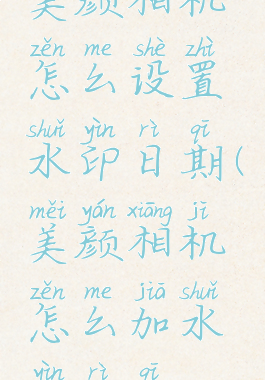 美颜相机
zěn me shè zhì
怎么设置
shuǐ yìn rì qī
水印日期(
měi yán xiāng jī
美颜相机
zěn me jiā shuǐ
怎么加水
yìn rì qī